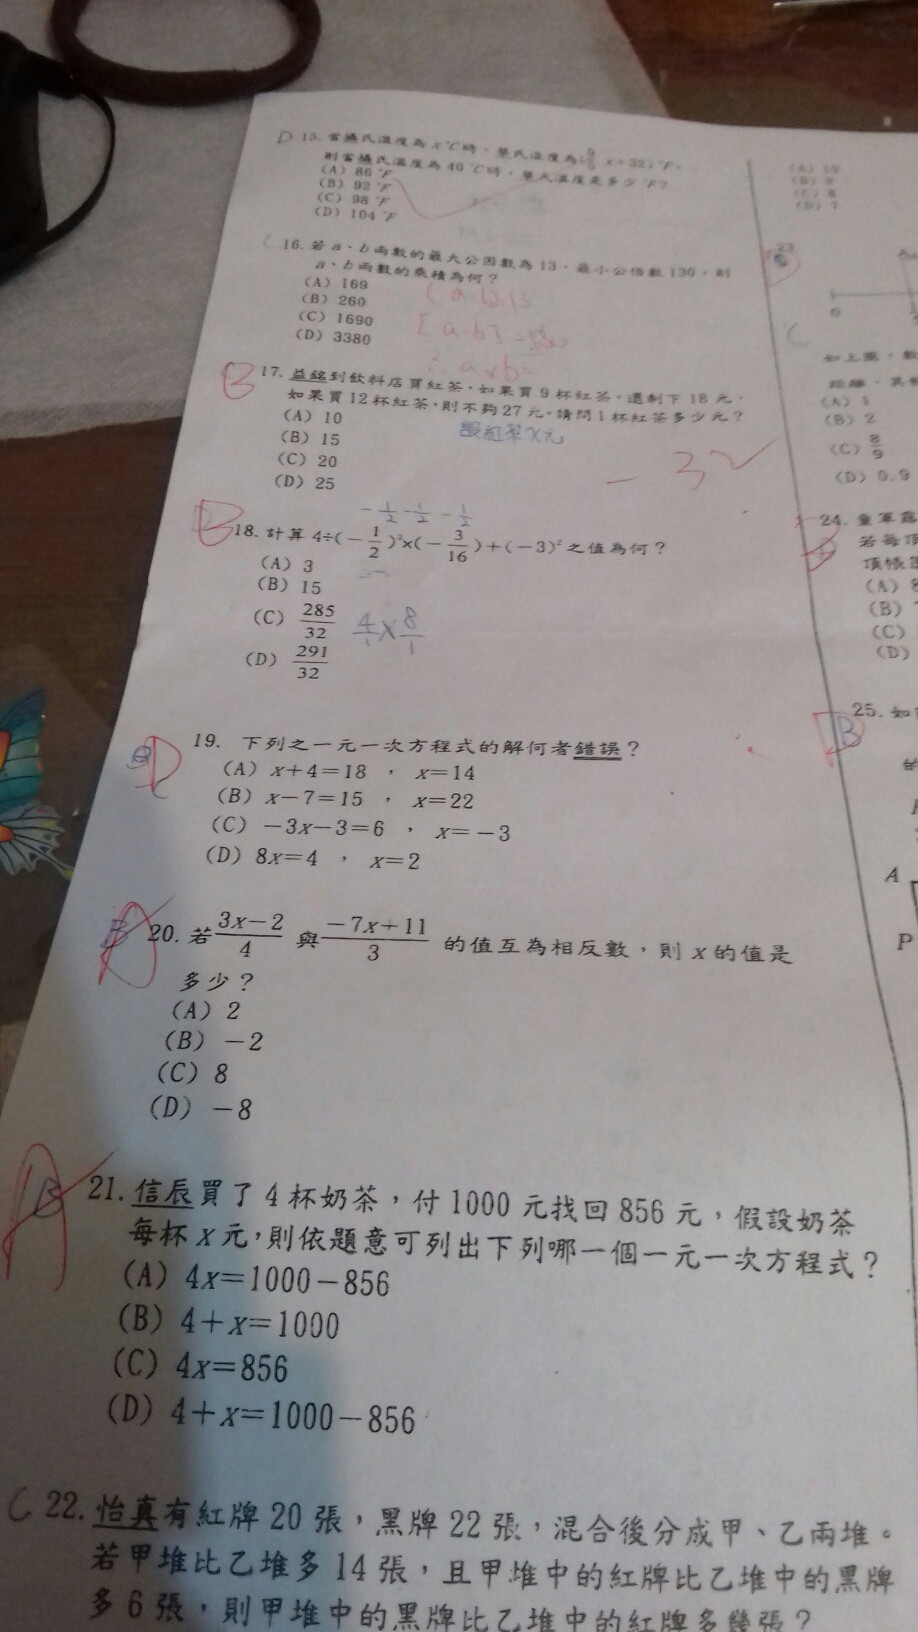 D 15. 當攝氏溫度為x℃時,華氏溫度為(9/5 x+32)℉,
則當攝氏溫度為40℃時,華氏溫度是多少℉?
(A) 86℉
(B) 92℉
(C) 98℉
(D) 104℉
C 16. 若a、b兩數的最大公因數為13,最小公倍數130,則
a、b兩數的乘積為何?
(A) 169
(B) 260
(C) 1690
(D) 3380
(a.b)=13
[a.b]=
∴a×b=
B 17. 益銘到飲料店買紅茶,如果買9杯紅茶,還剩下18元,
如果買12杯紅茶,則不夠27元,請問1杯紅茶多少元?
(A) 10
(B) 15
(C) 20
(D) 25
設紅茶x元
-32
-1/2 -1/2 -1/2
B 18. 計算4÷(-1/2)²×(-3/16)+(-3)²之值為何?
(A) 3
(B) 15
(C) 285/32
(D) 291/32
4/1×8/1
D 19. 下列之一元一次方程式的解何者錯誤?
(A) x+4=18 , x=14
(B) x-7=15 , x=22
(C) -3x-3=6 , x=-3
(D) 8x=4 , x=2
A 20. 若(3x-2)/4與(-7x+11)/3的值互為相反數,則x的值是
多少?
(A) 2
(B) -2
(C) 8
(D) -8
A B 21. 信辰買了4杯奶茶,付1000元找回856元,假設奶茶
每杯x元,則依題意可列出下列哪一個一元一次方程式?
(A) 4x=1000-856
(B) 4+x=1000
(C) 4x=856
(D) 4+x=1000-856
C 22. 怡真有紅牌20張,黑牌22張,混合後分成甲、乙兩堆。
若甲堆比乙堆多14張,且甲堆中的紅牌比乙堆中的黑牌
多6張,則甲堆中的黑牌比乙堆中的紅牌多幾張?
(A) 10
(B) 9
(C) 8
(D) 7
23
0
C
如上圖,數
距離,其
(A) 1
(B) 2
(C) 8/9
(D) 0.9
24. 童軍露
若每頂
頂帳
(A) 8
(B)
(C)
(D)
B 25. 如
的
A
P